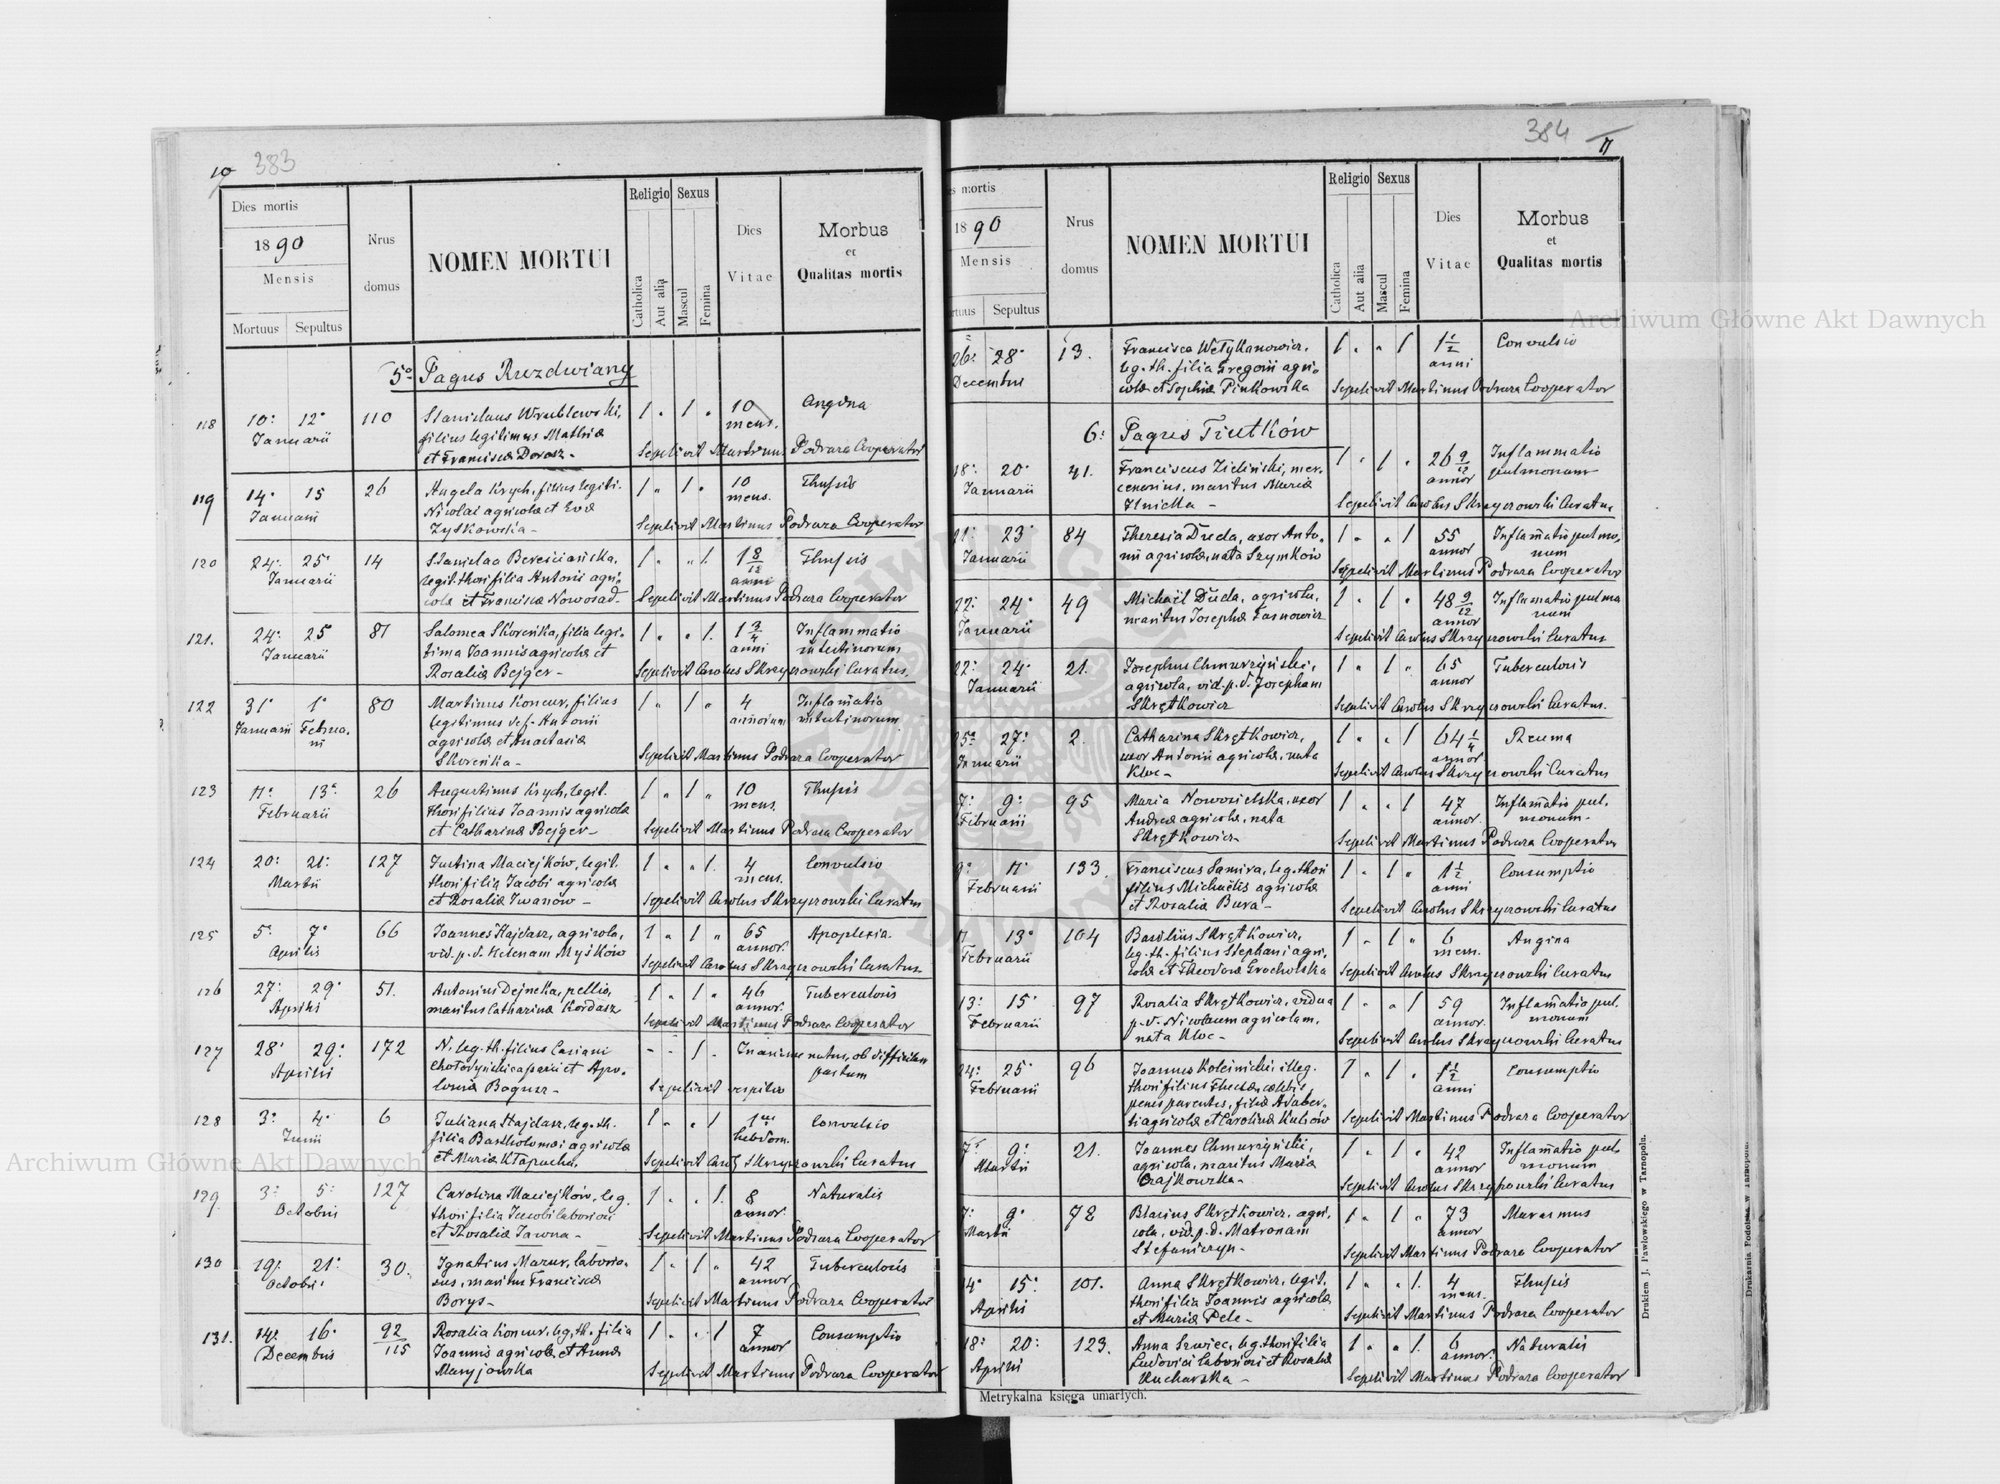 10 383
Dies mortis
1890
Mensis
Mortuus Sepultus
Nrus
domus
NOMEN MORTUI
Religio Sexus
Catholica
Aut alia
Mascul
Femina
Dies
Vitae
Morbus
et
Qualitas mortis
5º Pagus Ruzdwiany
118 10· 12· 110 Stanislaus Wrublewski, 1 " 1 " 10 Angina
Januarii filius legitimus Mathiæ mens.
et Francisca Dorosz - Sepelivit Martinus Podraza Cooperator
119 14· 15 26 Angela Krych, filius legiti. 1 " 1 " 10 Thysis
Januarii Nicolai agricolæ et Evæ mens.
Zytkowska - Sepelivit Martinus Podraza Cooperator
120 24· 25· 14 1 " " 1. 1 8/12 Thysis
Januarii legit. thori filia Antonii agri- anni
colæ et Francisca Nowosad - Sepelivit Martinus Podraza Cooperator
121. 24· 25 81 Salomea Skoreńka, filia legi- 1 " " 1. 1 3/4 Inflammatio
Januarii tima Joannis agricolæ et anni intestinorum
Rosaliæ Bejger - Sepelivit Carolus Skrzyszowski Curatus.
122 31· 1· 80 Martinus Koncur, filius 1 " 1 " 4 Inflam̄atio
Januarii Februa- legitimus def. Antonii annorum intestinorum
rii agricolæ et Anastasiæ
Skoreńka - Sepelivit Martinus Podraza Cooperator
123 11· 13· 26 Augustinus Krych, legit. 1 " 1 " 10 Thysis
Februarii thori filius Joannis agricolæ mens.
et Catharinæ Bejger - Sepelivit Martinus Podraza Cooperator
124 20· 21· 127 Justina Maciejków, legit. 1 " " 1. 4 Convulsio
Martii thori filia Jacobi agricolæ mens.
et Rosaliæ Iwanów - Sepelivit Carolus Skrzyszowski Curatus
125 5· 7· 66 Joannes Hajdasz, agricola, 1 " 1 " 65 Apoplexia.
Aprilis vid. p. d. Helenam Myśków annor.
Sepelivit Carolus Skrzyszowski Curatus
126 27· 29· 51. Antonius Dejneka, pellio, 1 " 1 " 46 Tuberculosis
Aprilis maritus Catharinæ Kordasz annor.
Sepelivit Martinus Podraza Cooperator
127 28· 29· 172 N. leg. th. filius Casiani - - 1 - Inanime natus, ob difficilem
Aprilis et Apo- partum
loniæ Bogusz - Sepelivit vespilio
128 3· 4· 6 Juliana Hajdasz, leg. th. 1 " " 1 1 Convulsio
Junii filia Bartholomæi agricolæ hebdom.
et Mariæ Kłapucha, Sepelivit Carol. Skrzyszowski Curatus
129. 3· 5· 127 Carolina Maciejków, leg. 1 " " 1. 8 Naturalis
Octobris thori filia Jacobi laboriosi annor.
et Rosaliæ Jawna - Sepelivit Martinus Podraza Cooperator
130 19· 21· 30. Ignatius Mazur, laborio- 1 " 1 " 42 Tuberculosis
Octobris sus, maritus Francisca annor
Borys - Sepelivit Martinus Podraza Cooperator
131. 14· 16· 92/115 Rosalia Koncur, leg. th. filia 1 " " 1 7 Consumptio
Decembris Joannis agricolæ et Annæ annor
Maryjowska Sepelivit Martinus Podraza Cooperator
384 11
mortis
1890
Mensis
Sepultus
Nrus
domus
NOMEN MORTUI
Religio Sexus
Catholica
Aut alia
Mascul
Femina
Dies
Vitae
Morbus
et
Qualitas mortis
26· 28· 13. Francisca Wetykanowicz, 1 " " 1 1 1/2 Convulsio
Decembris leg. th. filia Gregorii agri- anni
colæ et Sophiæ Pinkowska Sepelivit Martinus Podraza Cooperator
6· Pagus Trutków
18· 20· 41. Franciscus Zieliński, mer- 1 " 1 " 26 9/12 Inflammatio
Januarii cenarius, maritus Mariæ annor pulmonum
Ilnicka - Sepelivit Carolus Skrzyszowski Curatus
21· 23· 84 Theresia Duda, uxor Anto- 1 " " 1 55 Inflam̄atio pulmo-
Januarii nii agricolæ, nata Szymków annor num
Sepelivit Martinus Podraza Cooperator
22· 24· 49 Michaël Duda, agricola, 1 " 1 " 48 9/12 Inflam̄atio pulmo
Januarii maritus Josephæ Jasnowicz annor num
Sepelivit Carolus Skrzyszowski Curatus
22· 24· 21. Josephus Chmurzyński, 1 " 1 " 65 Tuberculosis
Januarii agricola, vid. p. d. Josepham annor
Skrętkowicz Sepelivit Carolus Skrzyszowski Curatus.
25· 27· 2. Catharina Skrętkowicz, 1 " " 1 64 1/4 Reuma
Januarii uxor Antonii agricolæ, nata annor
Kloc - Sepelivit Carolus Skrzyszowski Curatus
7· 9· 95 Maria Nowosielska, uxor 1 " " 1 47 Inflam̄atio pul-
Februarii Andreæ agricolæ, nata annor. monum -
Skrętkowicz - Sepelivit Martinus Podraza Cooperator
9· 11· 133. Franciscus Samira, leg. thori 1 " 1 " 1 1/2 Consumptio
Februarii filius Michaëlis agricolæ anni
et Rosaliæ Bura - Sepelivit Carolus Skrzyszowski Curatus
11 13· 104 Basilius Skrętkowicz, 1 " 1 " 6 Angina
Februarii leg. th. filius Stephani agri- mens.
colæ et Theodoræ Grocholska Sepelivit Carolus Skrzyszowski Curatus
13· 15· 97 Rosalia Skrętkowicz, vidua 1 " " 1 59 Inflam̄atio pul-
Februarii p. d. Nicolaum agricolam, annor. monum
nata Kloc - Sepelivit Carolus Skrzyszowski Curatus
24· 25· 96 Joannes Koleśnicki illeg. 1 " 1 " 1 1/2 Consumptio
Februarii thori filius anni
penes parentes, filiæ Adalber-
ti agricolæ et Carolinæ Sepelivit Martinus Podraza Cooperator
7· 9· 21. Joannes Chmurzyński, 1 " 1 " 42 Inflam̄atio pul-
Martii agricola, maritus Mariæ annor monum
Czajkowska - Sepelivit Carolus Skrzyszowski Curatus
7· 9· 72 Blasius Skrętkowicz, agri- 1 " 1 " 73 Marasmus
Martii cola, vid. p. d. Matronam annor
Stefaniszyn - Sepelivit Martinus Podraza Cooperator
14· 15· 101. Anna Skrętkowicz, legit. 1 " " 1. 4 Thysis
Aprilis thori filia Joannis agricolæ mens.
et Mariæ Pele - Sepelivit Martinus Podraza Cooperator
18· 20· 123. Anna Szwiec, leg. thori filia 1 " " 1. 6 Naturalis
Aprilis Ludovici laboriosi et Rosaliæ annor.
Kucharska - Sepelivit Martinus Podraza Cooperator
Metrykalna księga umarłych.
Drukiem J. Pawłowskiego w Tarnopolu.
Drukarnia Podolska w Tarnopolu.
Archiwum Główne Akt Dawnych
Archiwum Główne Akt Dawnych